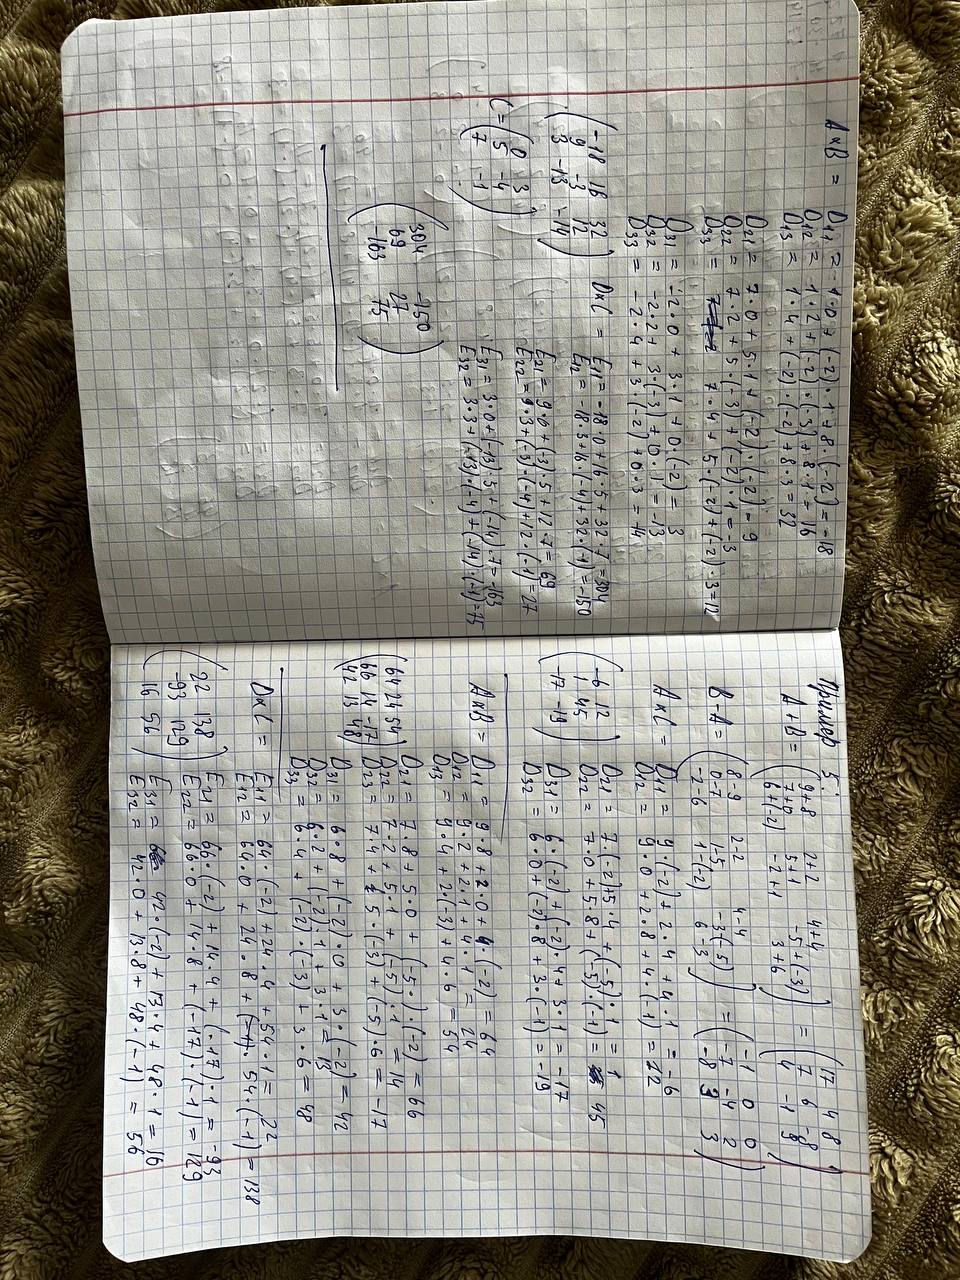 A×B = D11 = -1·0 + (-2)·1 + 8·(-2) = -18
D12 = 1·2 + (-2)·(-3) + 8·1 = 16
D13 = 1·4 + (-2)·(-2) + 8·3 = 32
D21 = 7·0 + 5·1 + (-2)·(-2) = 9
D22 = 7·2 + 5·(-3) + (-2)·1 = -3
D33 = 7·4 + 5·(-2) + (-2)·3 = 12
D31 = -2·0 + 3·1 + 0·(-2) = 3
D32 = -2·2 + 3·(-3) + 0·1 = -13
D33 = -2·4 + 3·(-2) + 0·3 = -14
(-18 16 32
9 -3 12
3 -13 -14)
D×C = E11 = -18·0 + 16·5 + 32·7 = 304
E12 = -18·3 + 16·(-4) + 32·(-1) = -150
E21 = 9·0 + (-3)·5 + 12·7 = 69
E22 = 9·3 + (-3)·(-4) + 12·(-1) = 27
C = (0 3
5 -4
7 -1)
E31 = 3·0 + (-13)·5 + (-14)·7 = -163
E32 = 3·3 + (-13)·(-4) + (-14)·(-1) = 75
(304 -150
69 27
-163 75)
Пример 5:
A+B = (9+8 2+2 4+4
7+0 5+1 -5+(-3)
6+(-2) -2+1 3+6)
= (17 4 8
7 6 -8
4 -1 9)
B-A = (8-9 2-2 4-4
0-7 1-5 -3-(-5)
-2-6 1-(-2) 6-3)
= (-1 0 0
-7 -4 2
-8 3 3)
A×C = D11 = 9·(-2) + 2·4 + 4·1 = -6
D12 = 9·0 + 2·8 + 4·(-1) = 12
D21 = 7·(-2) + 5·4 + (-5)·1 = 1
D22 = 7·0 + 5·8 + (-5)·(-1) = 45
D31 = 6·(-2) + (-2)·4 + 3·1 = -17
D32 = 6·0 + (-2)·8 + 3·(-1) = -19
(-6 12
1 45
-17 -19)
A×B = D11 = 9·8 + 2·0 + 4·(-2) = 64
D12 = 9·2 + 2·1 + 4·1 = 24
D13 = 9·4 + 2·(-3) + 4·6 = 54
D21 = 7·8 + 5·0 + (-5·)·(-2) = 66
D22 = 7·2 + 5·1 + (-5)·1 = 14
D23 = 7·4 + 5·(-3) + (-5)·6 = -17
D31 = 6·8 + (-2)·0 + 3·(-2) = 42
D32 = 6·2 + (-2)·1 + 3·1 = 13
D33 = 6·4 + (-2)·(-3) + 3·6 = 48
(64 24 54
66 14 -17
42 13 48)
D×C = E11 = 64·(-2) + 24·4 + 54·1 = 22
E12 = 64·0 + 24·8 + (-1)· 54·(-1) = 138
E21 = 66·(-2) + 14·4 + (-17)·1 = -93
E22 = 66·0 + 14·8 + (-17)·(-1) = 129
E31 = 42·(-2) + 13·4 + 48·1 = 16
E32 = 42·0 + 13·8 + 48·(-1) = 56
(22 138
-93 129
16 56)